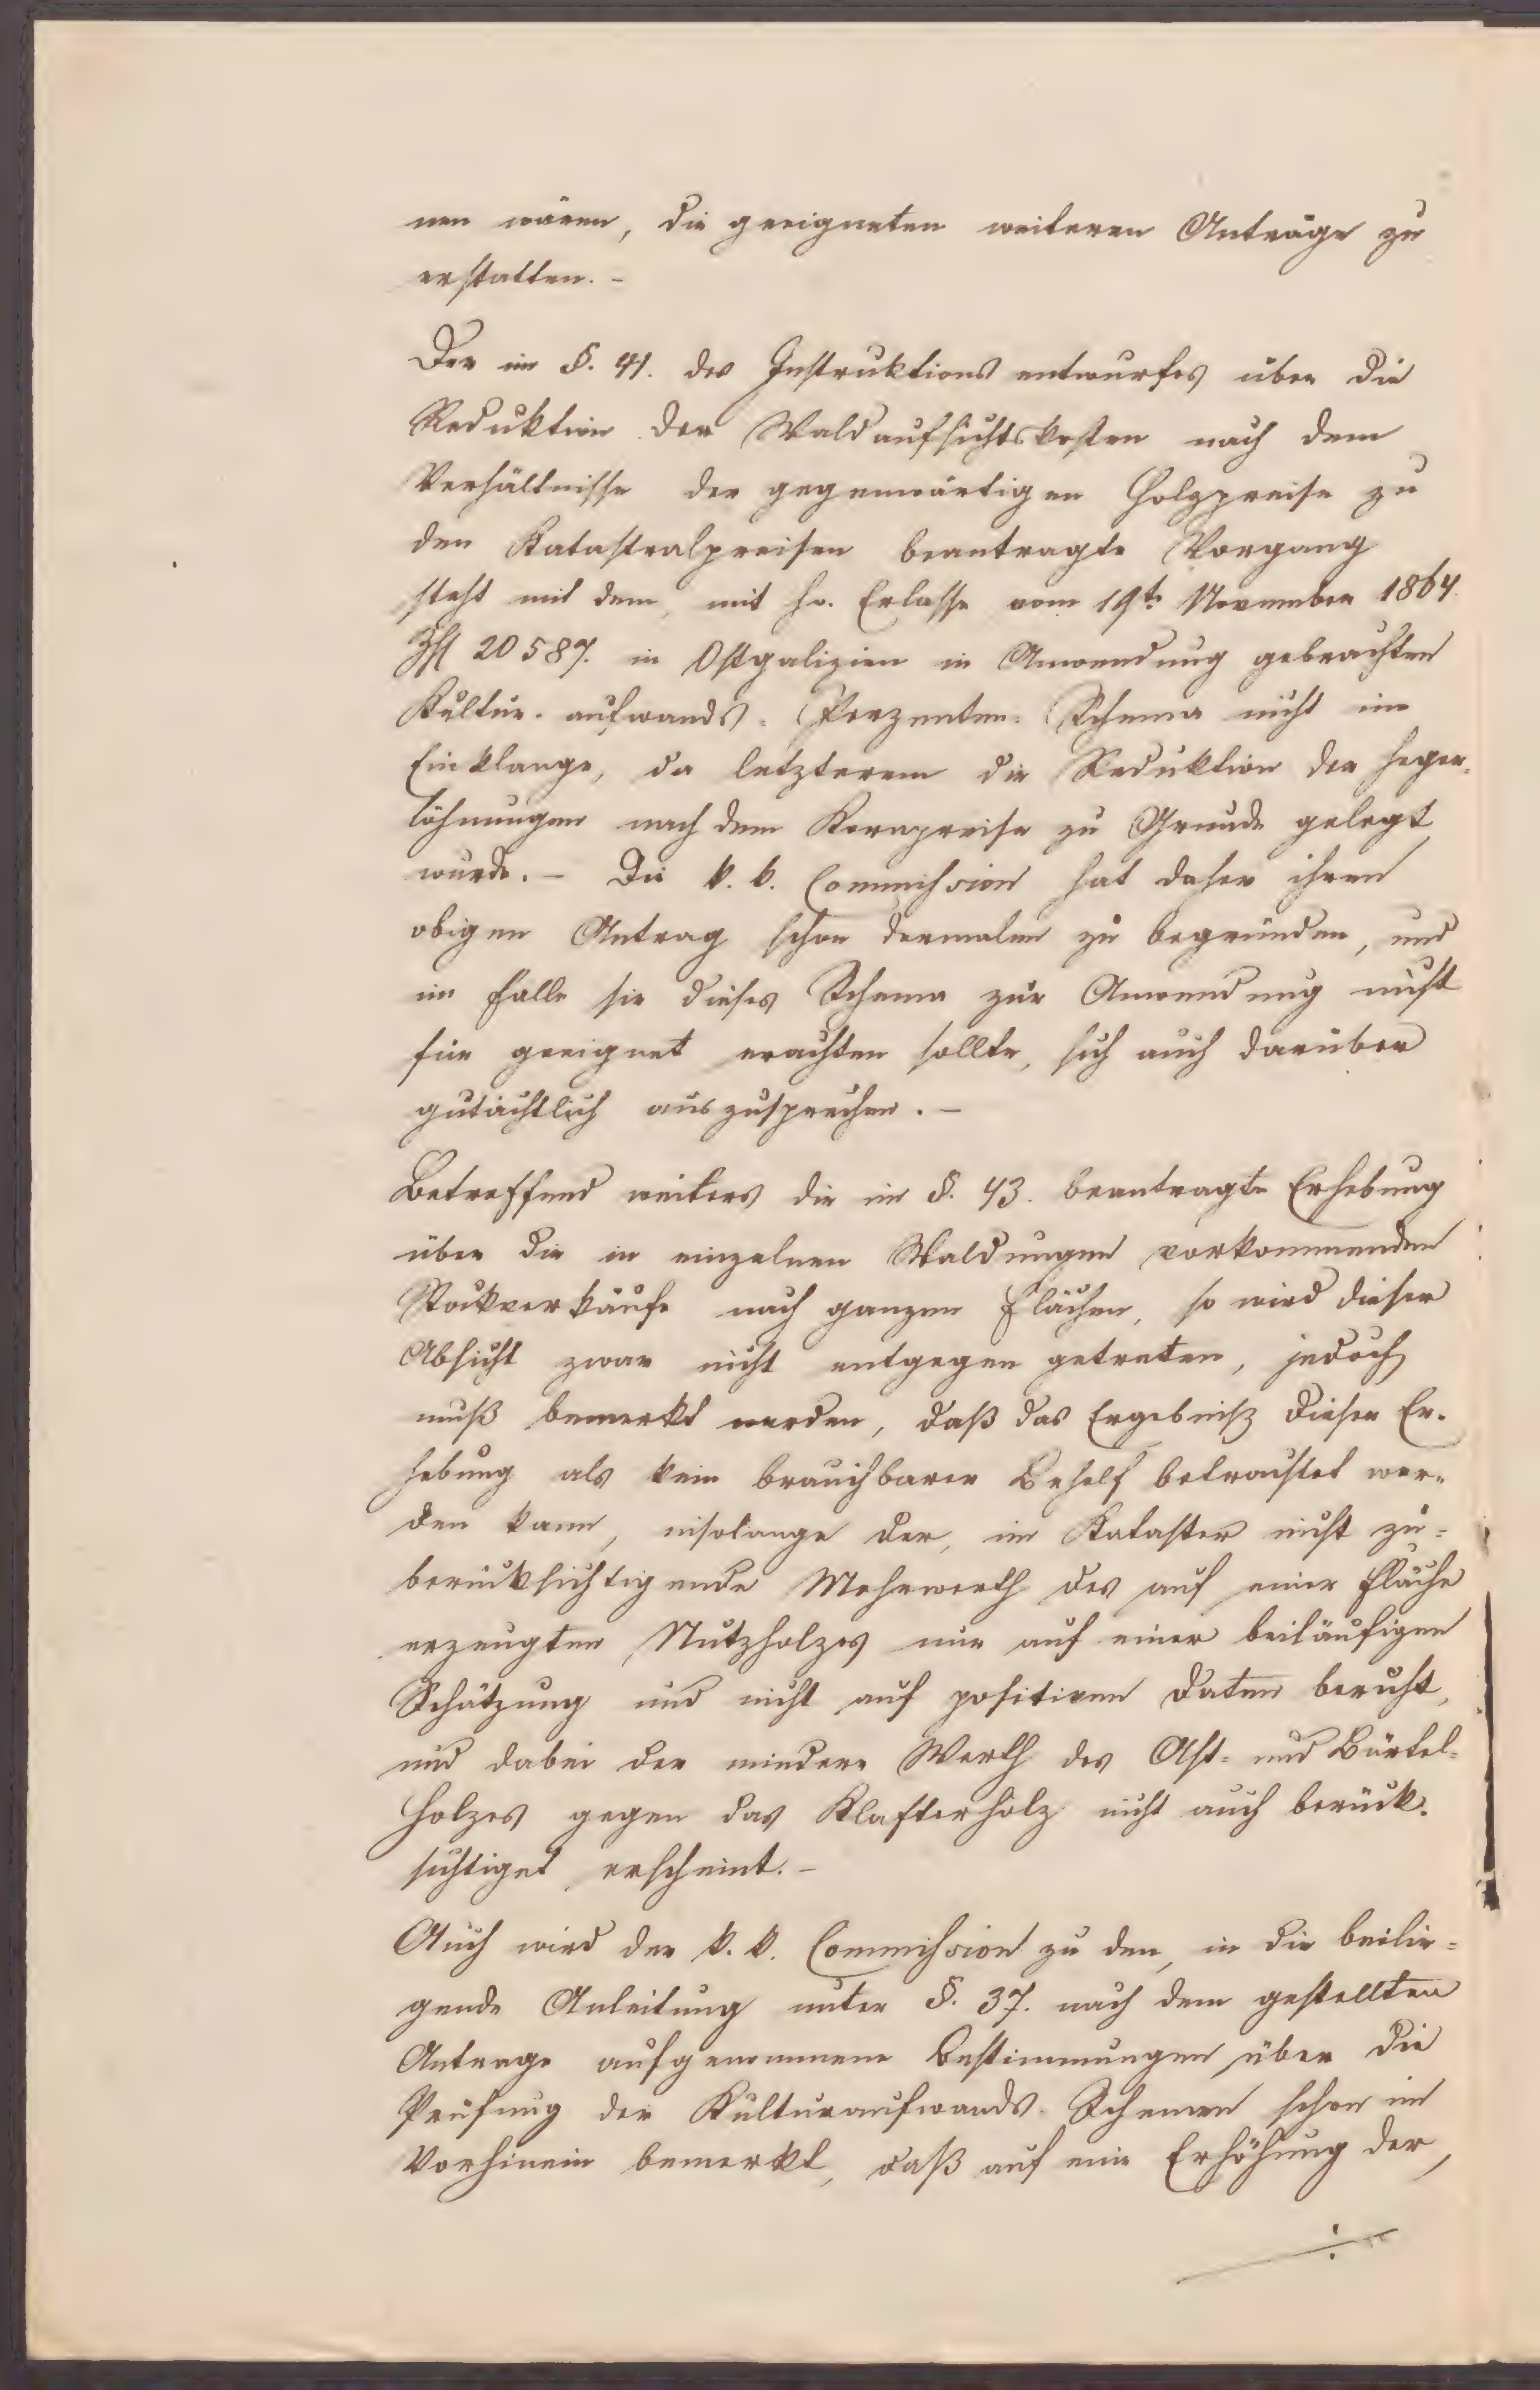 nen wären, die geeigneten weiteren Anträge zu
erstatten. –
Der im §. 41. des Instruktions entwurfes über die
Reduktion der Waldaufsichtskosten nach dem
Verhältnisse der gegenwärtigen Holzpreise zu
den Katastralpreisen beantragte Vorgang
steht mit dem, mit h. Erlasse vom 19t. November 1864.
Zhl 20587. in Ostgalizien in Anwendung gebrachten
Kultur-aufwands-Perzenten-Schema nicht im
Einklange, da letzterem die Reduktion der Heger-
löhnungen nach dem Kornpreise zu Grunde gelegt
wurde. – Die k. k. Commission hat daher ihren
obigen Antrag schon dermalen zu begründen, und
im Falle sie dieses Schema zur Anwendung nicht
für geeignet erachten sollte, sich auch darüber
gutächtlich auszusprechen. –
Betreffend weiters die im §. 43. beantragte Erhebung
über die in einzelnen Waldungen vorkommenden
Stockverkäufe nach ganzen Flächen, so wird dieser
Absicht zwar nicht entgegen getreten, jedoch
muß bemerkt werden, daß das Ergebniß dieser Er-
hebung als kein brauchbarer Behelf betrachtet wer-
den kann, insolange der, im Kataster nicht zu-
berücksichtigende Mehrwerth des auf einer Fläche
erzeugten Nutzholzes nur auf einer beiläufigen
Schätzung und nicht auf positiven Daten beruht,
und dabei der mindere Werth des Ast- und Bürtel-
holzes gegen das Klafterholz nicht auch berück-
sichtiget erscheint. –
Auch wird der k. k. Commission zu den, in die beilie-
gende Anleitung unter §. 37. nach dem gestellten
Antrage aufgenommenen Bestimmungen über die
Prüfung der Kulturaufwands-Schemen schon im
Vorhinein bemerkt, daß auf eine Erhöhung der,